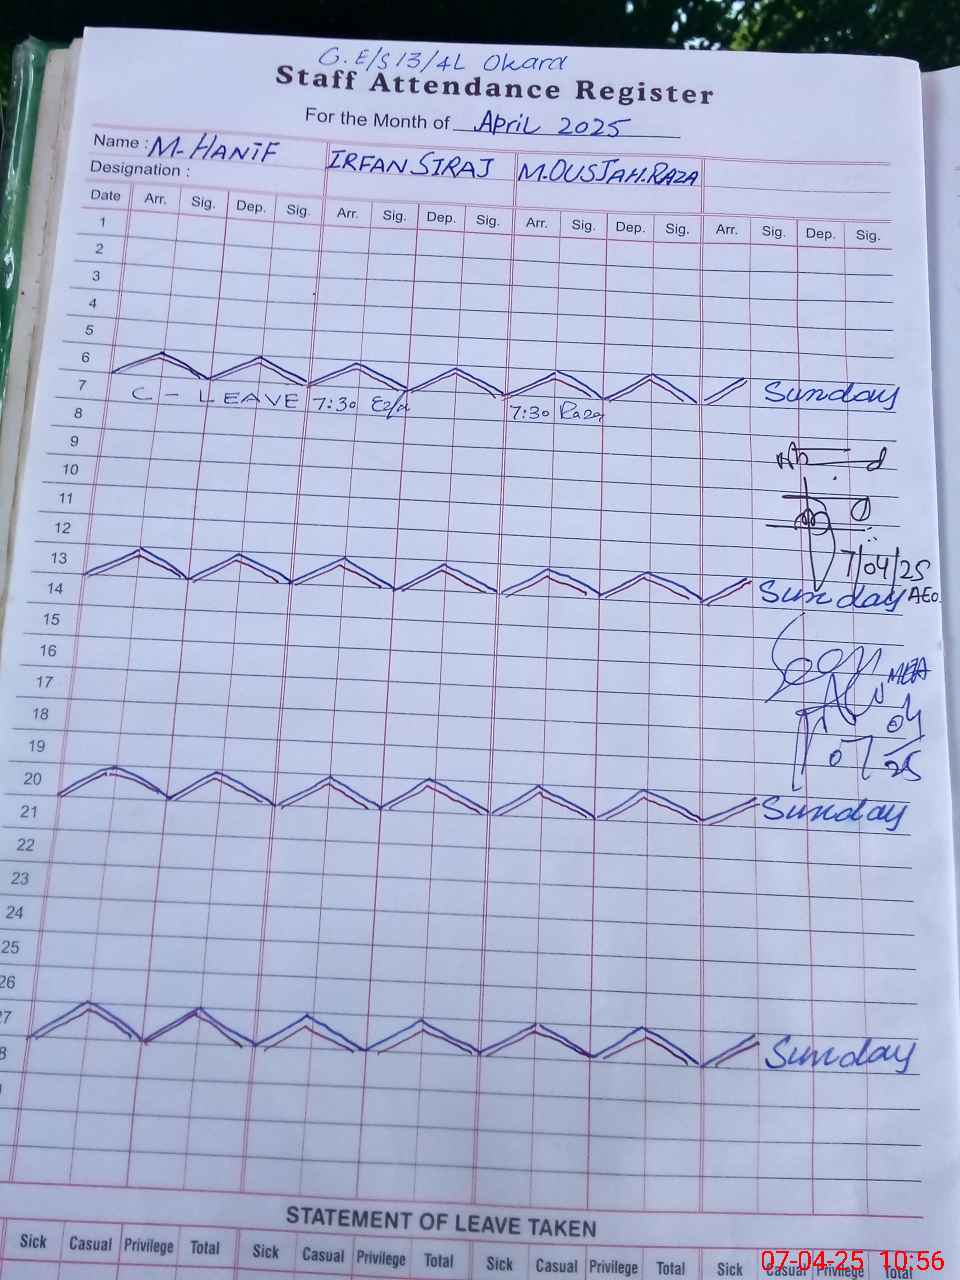 G.E/S 13/4L Okara
Staff Attendance Register
For the Month of April 2025
Name : M. HANIF IRFAN SIRAJ M. OUSJAH. RAZA
Designation :
Date Arr. Sig. Dep. Sig. Arr. Sig. Dep. Sig. Arr. Sig. Dep. Sig. Arr. Sig. Dep. Sig.
1
2
3
4
5
6 Sunday
7 C - LEAVE 7:30 7:30 Raza
8
9
10
11
12
13 7/04/25
14 Sunday AEO
15
16
17 MEA
18 04
19 07 25
20
21 Sunday
22
23
24
25
26
27
8 Sunday
STATEMENT OF LEAVE TAKEN
Sick Casual Privilege Total Sick Casual Privilege Total Sick Casual Privilege Total Sick Casual Privilege Total
07-04-25 10:56